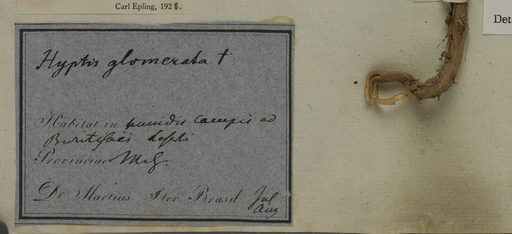 Carl Epling, 1928.
Det
Hyptis glomerata †
Habitat in humidis campis ad
Provinciae M.G.
Dr. Martius Iter Brasil Jul
Aug